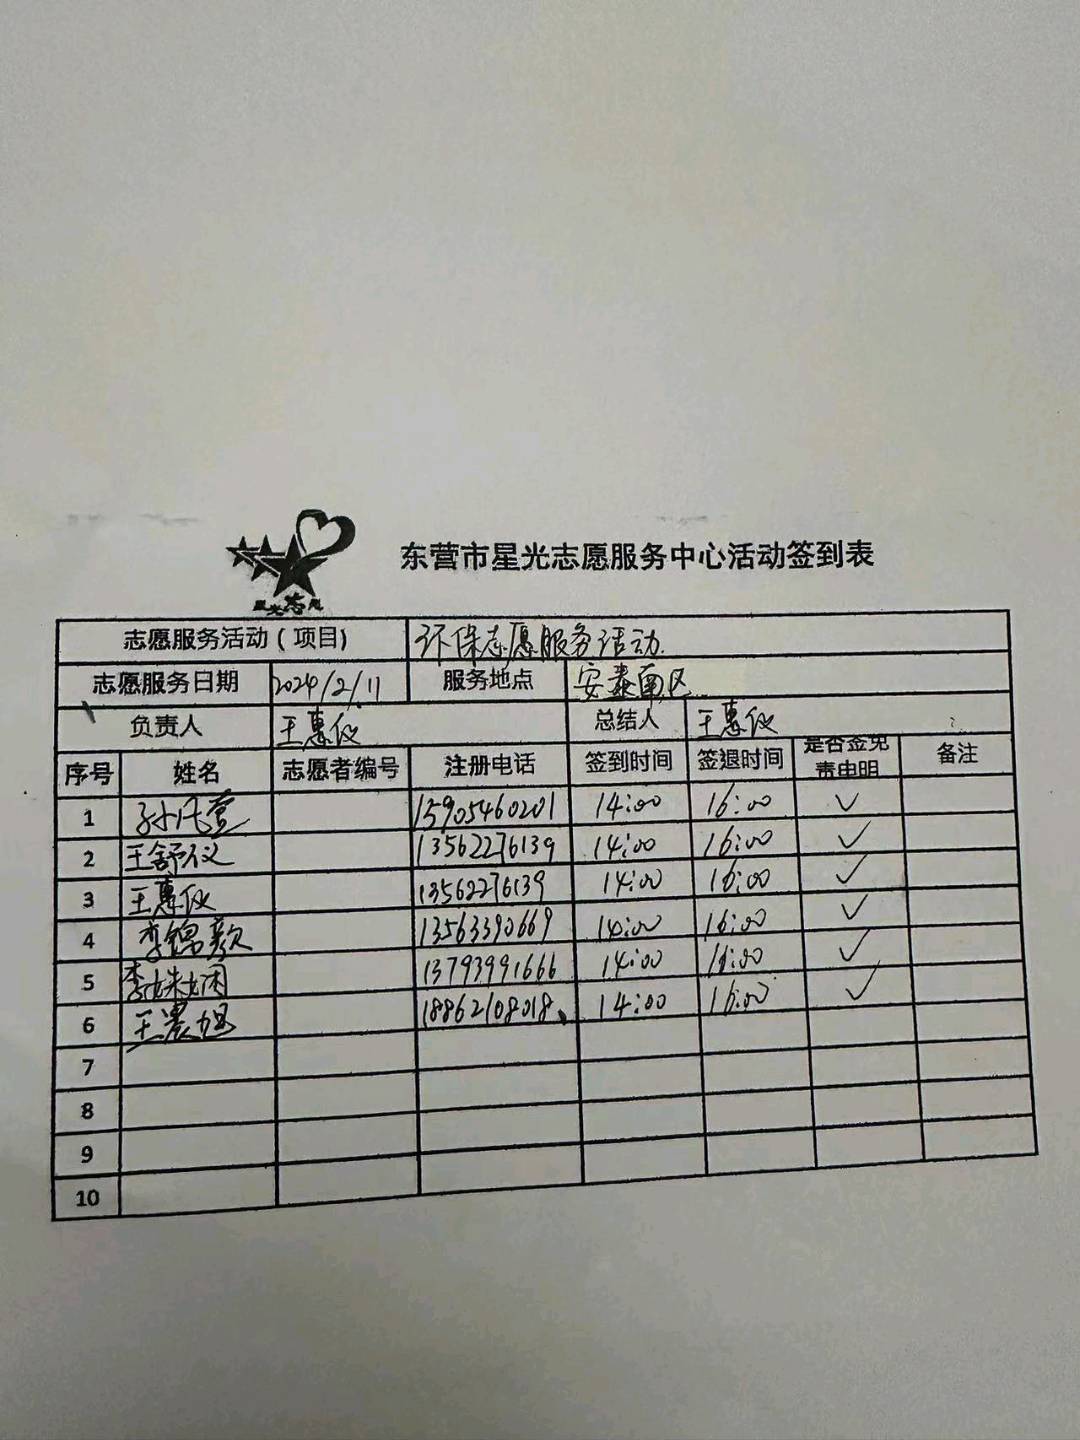 星光志愿
东营市星光志愿服务中心活动签到表
志愿服务活动（项目) 环保志愿服务活动.
志愿服务日期 2024/2/11 服务地点 安泰南区
负责人 王惠仪 总结人 王惠仪
序号 姓名 志愿者编号 注册电话 签到时间 签退时间 是否签免责申明 备注
1 15905460201 14:00 16:00 ✓
2 王舒仪 13562276139 14:00 16:00 ✓
3 王惠仪 13562276139 14:00 16:00 ✓
4 李锦颜 13563390669 14:00 16:00 ✓
5 李姝娴 13793991666 14:00 16:00 ✓
6 18862108018 14:00 16:00 ✓
7
8
9
10